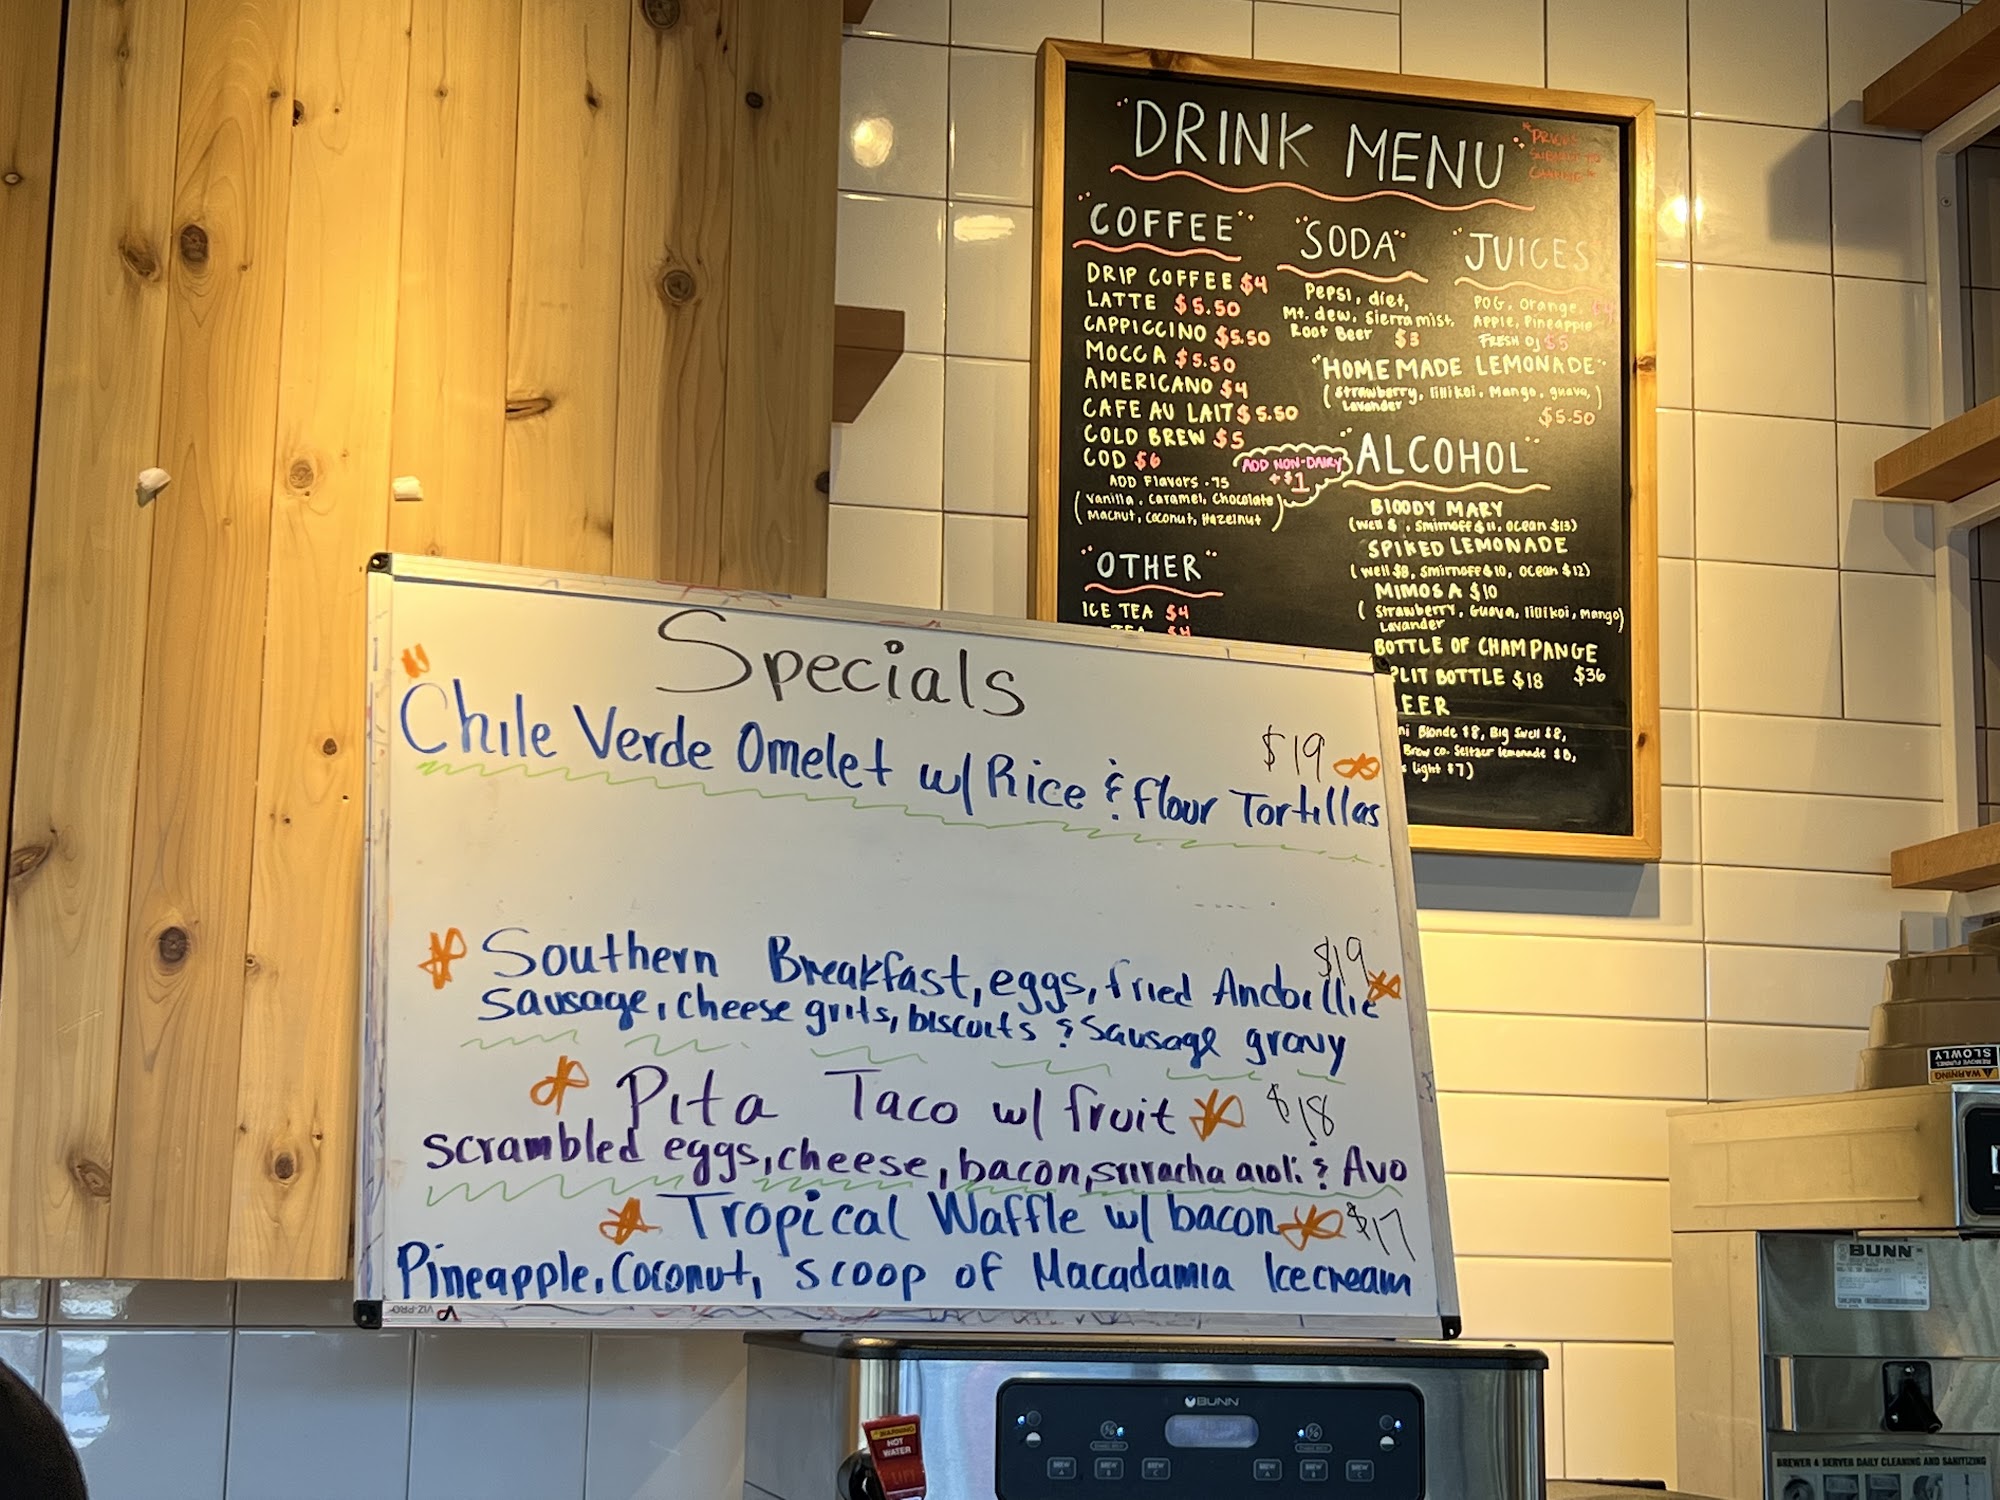 "DRINK MENU"
*PRICES
SUBJECT TO
CHANGE*
"COFFEE"
DRIP COFFEE $4
LATTE $5.50
CAPPICCINO $5.50
MOCCA $5.50
AMERICANO $4
CAFE AU LAIT $5.50
COLD BREW $5
COD $6
ADD Flavors .75
(Vanilla, Caramel, Chocolate
Macnut, Coconut, Hazelnut)
ADD NON-DAIRY
+$1
"OTHER"
ICE TEA $4
TEA $4
"SODA"
Pepsi, diet,
Mt. dew, Sierra mist.
Root Beer $3
"JUICES"
POG, Orange, $4
Apple, Pineapple
FRESH OJ $5
"HOMEMADE LEMONADE"
(Strawberry, lilikoi, Mango, guava,
Lavander)
$5.50
"ALCOHOL"
BLOODY MARY
(well $ , Smirnoff $11, OCEAN $13)
SPIKED LEMONADE
(well $8, Smirnoff $10, OCEAN $12)
MIMOSA $10
(Strawberry, Guava, lilikoi, Mango)
Lavander
BOTTLE OF CHAMPANGE
$36
PLIT BOTTLE $18
EER
ni Blonde $8, Big Swell $8,
Brew co. Seltzer lemonade $8,
light $7)
Specials
Chile Verde Omelet w/ Rice & flour Tortillas
$19
Southern Breakfast, eggs, fried Andoillie
$19
Sausage, cheese grits, biscuits & Sausage gravy
Pita Taco w/ fruit $18
scrambled eggs, cheese, bacon, sriracha aioli & Avo
Tropical Waffle w/ bacon $17
Pineapple, Coconut, scoop of Macadamia Icecream
VIZ-PRO
BUNN
BREW A
BREW B
BREW C
BREW A
BREW B
BREW C
WARNING
HOT
WATER
LIFT
WARNING
REMOVE FUNNEL
SLOWLY
BUNN
BREWER & SERVER DAILY CLEANING AND SANITIZING